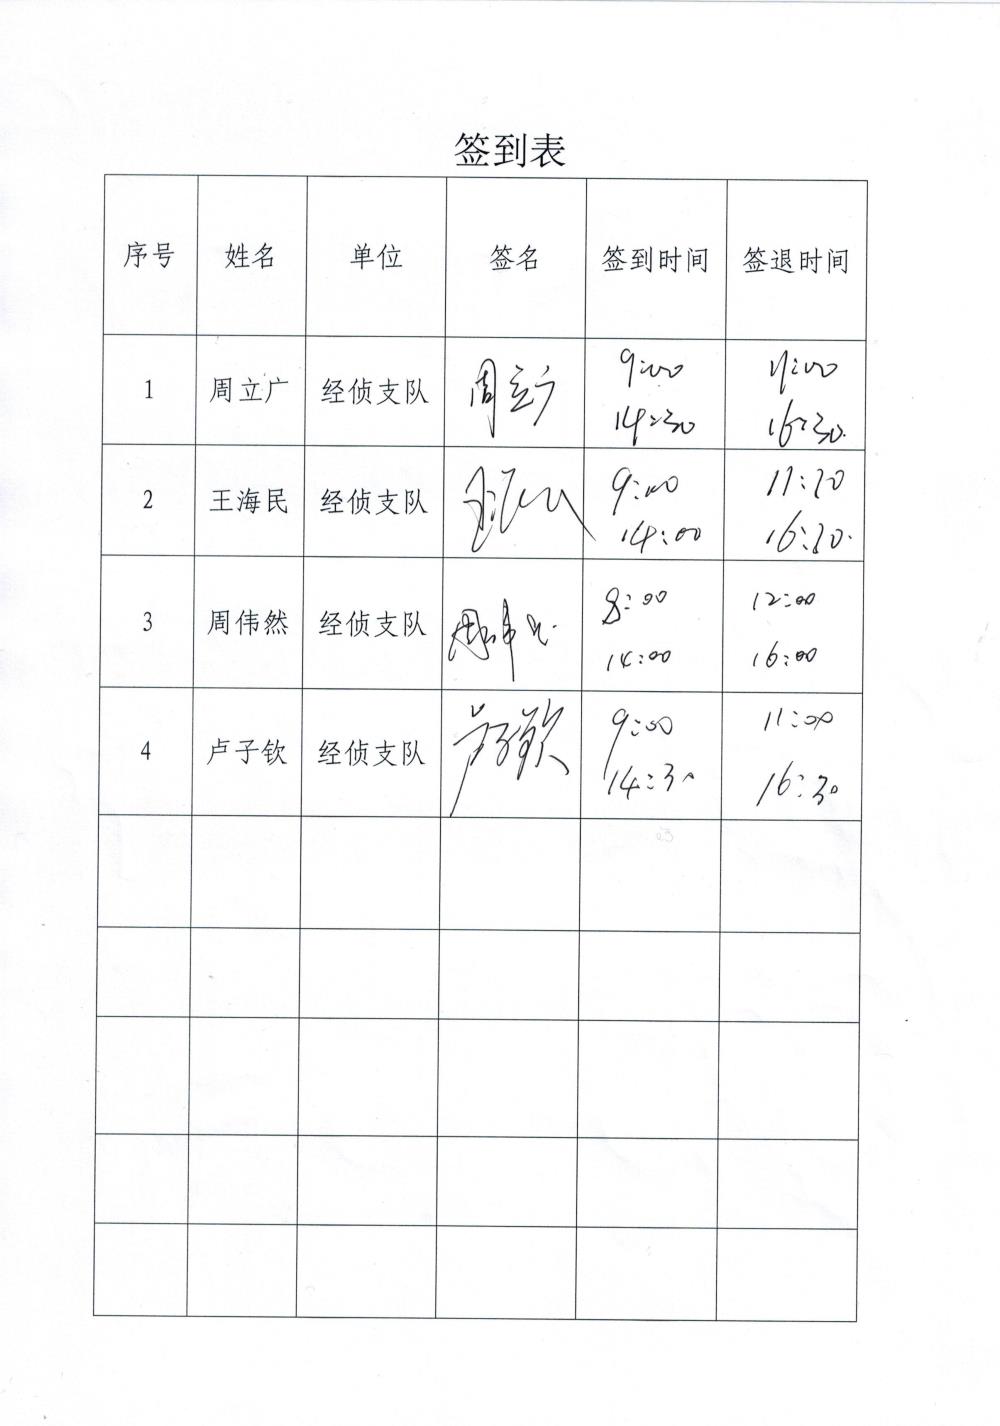 签到表
序号 姓名 单位 签名 签到时间 签退时间
1 周立广 经侦支队 周立广 9:00 11:00
14:30 16:30.
2 王海民 经侦支队 王海民 9:00 11:30
14:00 16:30.
3 周伟然 经侦支队 周伟然 8:00 12:00
14:00 16:00
4 卢子钦 经侦支队 卢子钦 9:00 11:00
14:30 16:30